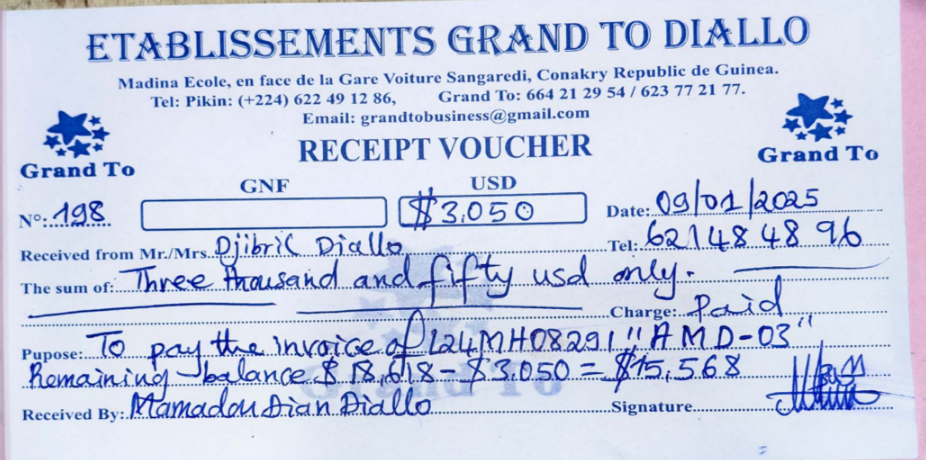 ETABLISSEMENTS GRAND TO DIALLO
Madina Ecole, en face de la Gare Voiture Sangaredi, Conakry Republic de Guinea.
Tel: Pikin: (+224) 622 49 12 86, Grand To: 664 21 29 54 / 623 77 21 77.
Email: grandtobusiness@gmail.com
Grand To
RECEIPT VOUCHER
Grand To
GNF USD
Nº: 198 $3.050 Date: 09/01/2025
Received from Mr./Mrs. Djibril Diallo Tel: 621 48 48 96
The sum of: Three thousand and fifty usd only.
Charge: Paid
Pupose: To pay the invoice of L24MH08291 "AMD-03"
Remaining balance $18,618 - $3.050 = $15,568
Received By: Mamadou Dian Diallo Signature